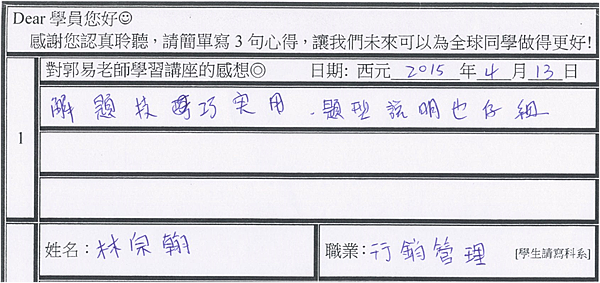 Dear 學員您好☺
感謝您認真聆聽，請簡單寫3句心得，讓我們未來可以為全球同學做得更好!
對郭易老師學習講座的感想◎ 日期: 西元 2015 年 4 月 13 日
1
解題技巧實用、題型說明也仔細
姓名：林宗翰 職業：行銷管理 [學生請寫科系]